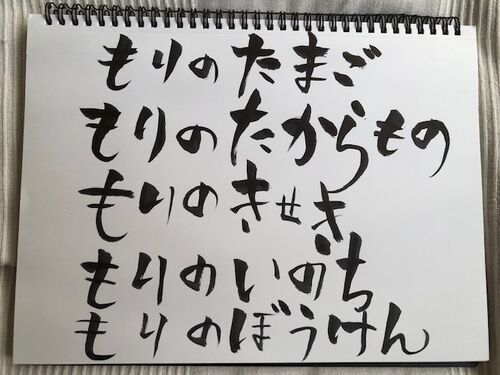 もりのたまご
もりのたからもの
もりのきせき
もりのいのち
もりのぼうけん